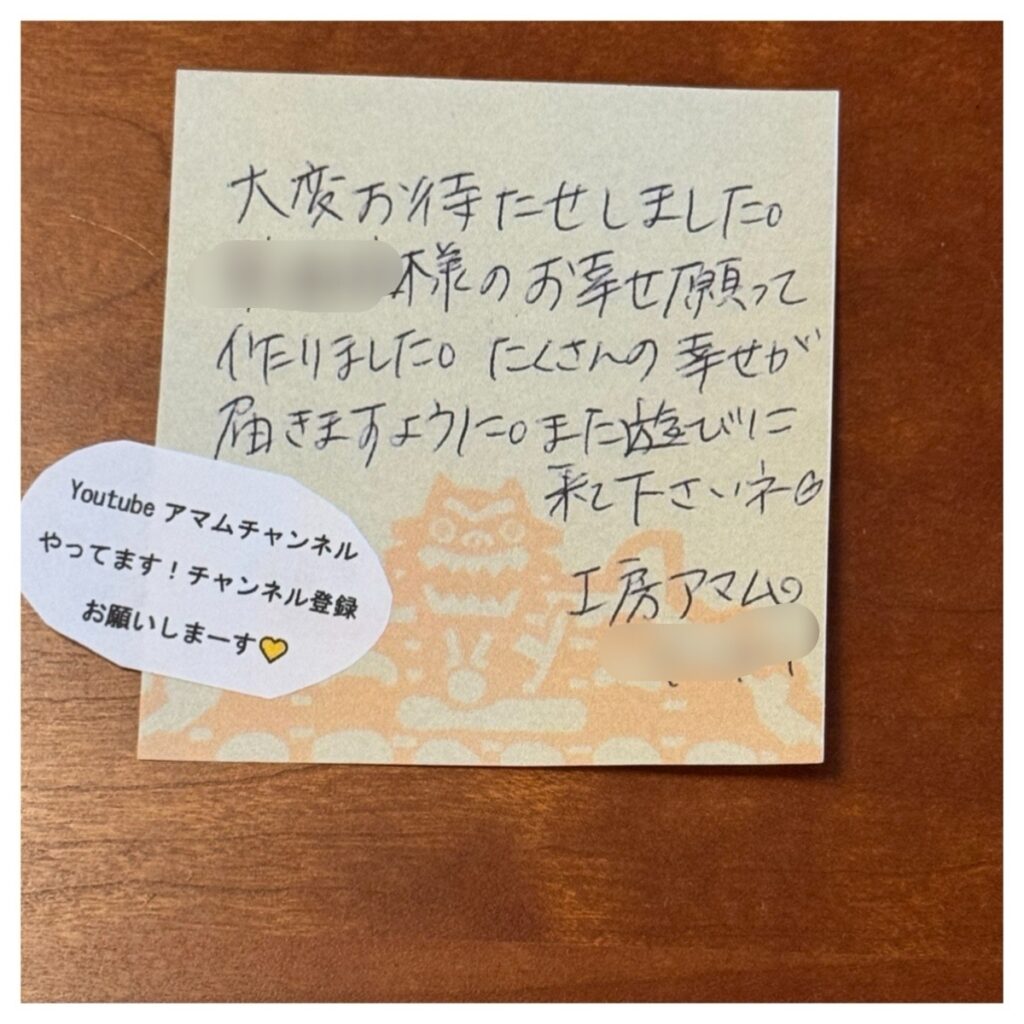 大変お待たせしました。
様のお幸せ願って
作りました。たくさんの幸せが
届きますように。また遊びに
来て下さいネ
工房アマム
Youtube アマムチャンネル
やってます！チャンネル登録
お願いしまーす💛